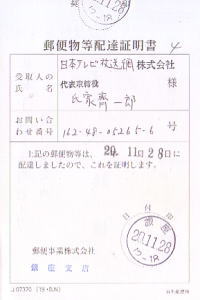 12-18
郵便物等配達証明書
受取人の氏名
日本テレビ放送網株式会社
代表取締役 様
氏家齊一郎
お問い合わせ番号
162-48-05265-6 号
上記の郵便物等は、20.11月28日に
配達しましたので、これを証明します。
日付印
20.11.28
12-18
郵便事業株式会社
銀座支店